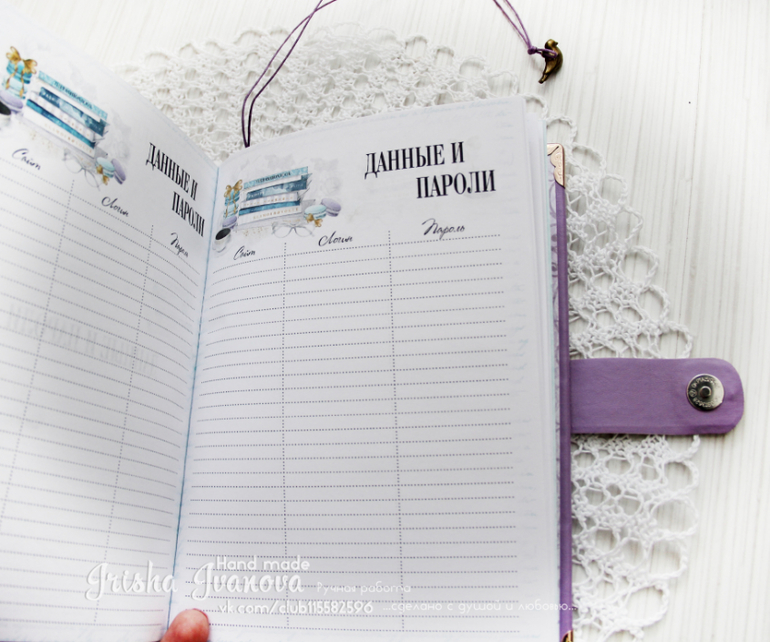 ДАННЫЕ И
ПАРОЛИ
Сайт Логин Пароль
ДАННЫЕ И
ПАРОЛИ
Сайт Логин Пароль
Hand made
Irisha Ivanova Ручная работа
vk.com/club115582596 ...сделано с душой и любовью...